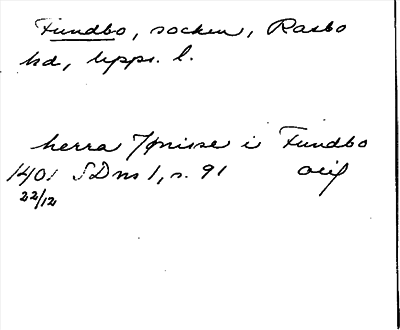 Fundbo, socken, Rasbo
hd, Upps. l.
herra Jønisse i Fundbo
1401 SDns 1, s. 91 orig
22/12